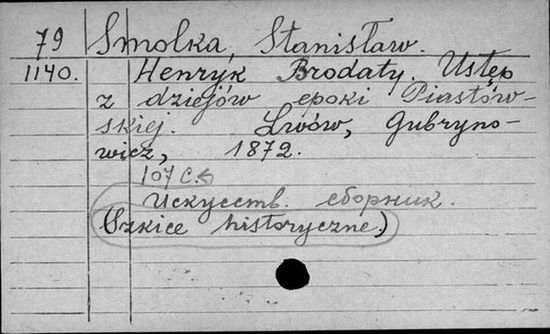 79 Smolka, Stanisław.
1140. Henryk Brodaty. Ustęp
z dziejów epoki Piastów-
skiej. Lwów, Gubryno-
wicz, 1872.
107 С.
Искусств. сборник.
(Szkice historyczne.)